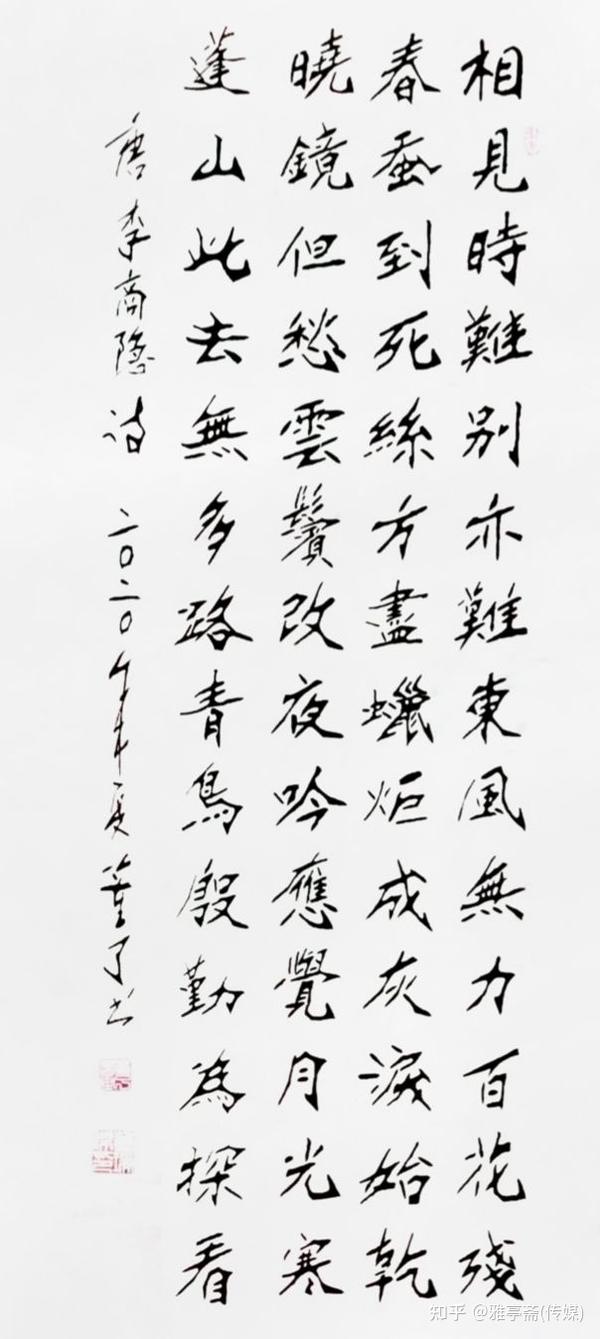 相見時難別亦難東風無力百花殘
春蚕到死絲方盡蠟炬成灰淚始乾
曉鏡但愁雲鬢改夜吟應覺月光寒
蓬山此去無多路青鳥殷勤為探看
唐李商隐诗 二〇二〇年夏 董了书
知乎 @雅亭斋(传媒)